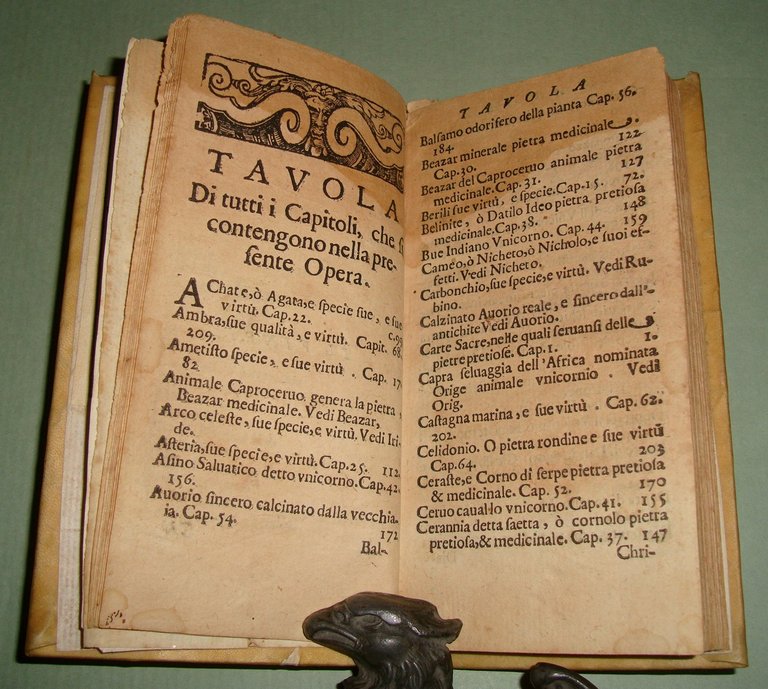 TAVOLA
Di tutti i Capitoli, che si
contengono nella pre-
sente Opera.
AChate, ò Agata, e specie sue, e sue
virtù. Cap. 22. c. 99
Ambra, sue qualità, e virtù. Capit. 68.
209.
Ametisto specie, e sue virtù. Cap.
82.
Animale Caproceruo genera la pietra
Beazar medicinale. Vedi Beazar,
Arco celeste, sue specie, e virtù. Vedi Iri-
de.
Asteria, sue specie, e virtù. Cap. 25. 112.
Asino Saluatico detto vnicorno. Cap. 42.
156.
Auorio sincero calcinato dalla vecchia-
ia. Cap. 54.
172
Bal-
TAVOLA
Balsamo odorifero della pianta Cap. 56.
184.
Beazar minerale pietra medicinale.
Cap. 30. 122
Beazar del Caproceruo animale pietra
medicinale. Cap. 31. 127
Berili sue virtù, e specie. Cap. 15. 72.
Belinite, ò Datilo Ideo pietra pretiosa
medicinale. Cap. 38. 148
Bue Indiano Vnicorno. Cap. 44. 159
Cameo, ò Nicheto, ò Nicholo, e suoi ef-
fetti. Vedi Nicheto.
Carbonchio, sue specie, e virtù. Vedi Ru-
bino.
Calzinato Auorio reale, e sincero dall'-
antichite Vedi Auorio.
Carte Sacre, nelle quali seruansi delle
pietre pretiose. Cap. 1. 1.
Capra seluaggia dell'Africa nominata
Orige animale vnicornio. Vedi
Orig.
Castagna marina, e sue virtù. Cap. 62.
202.
Celidonio. O pietra rondine e sue virtù
Cap. 64. 203
Ceraste, e Corno di serpe pietra pretiosa
& medicinale. Cap. 52. 170
Ceruo cauallo vnicorno. Cap. 41. 155
Cerannia detta saetta, ò cornolo pietra
pretiosa, & medicinale. Cap. 37. 147
Chri-